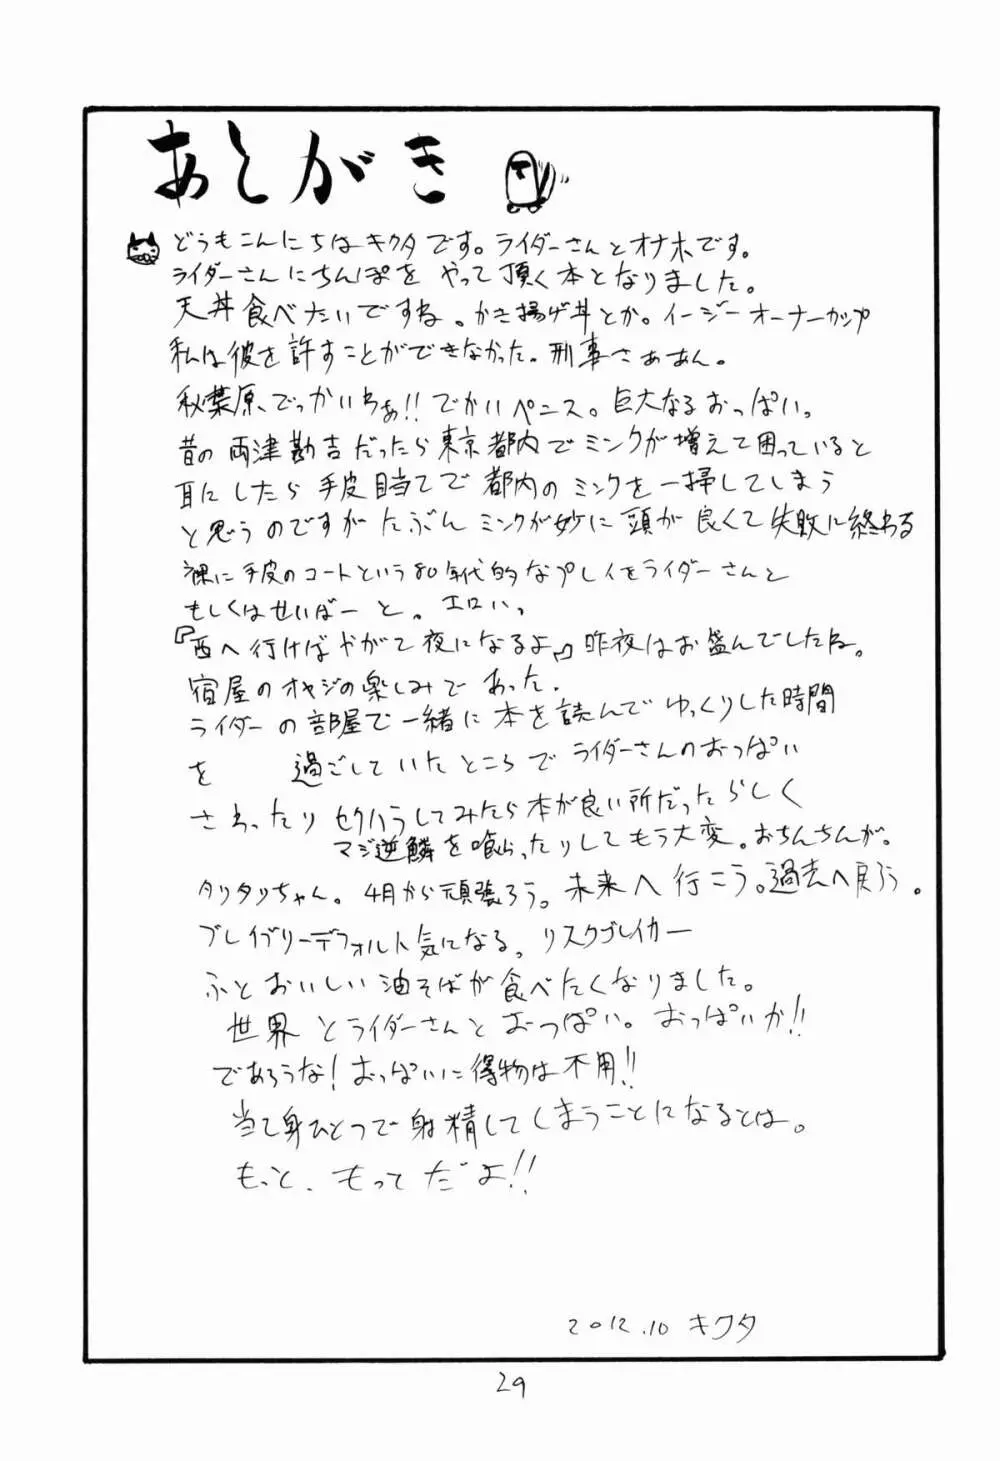 あとがき
どうもこんにちはキクタです。ライダーさんとオナホです。
ライダーさんにちんぽをやって頂く本となりました。
天丼食べたいですね。かき揚げ丼とか。イージーオーナーカップ
私は彼を許すことができなかった。刑事さぁあん。
秋葉原、でっかいわぁ!!でかいペニス。巨大なるおっぱい。
昔の両津勘吉だったら東京都内でミンクが増えて困っていると
耳にしたら手皮目当てで都内のミンクを一掃してしまう
と思うのですがたぶんミンクが妙に頭が良くて失敗に終わる
裸に手皮のコートという80年代的なプレイをライダーさんと
もしくはせいばーと。エロい。
『西へ行けばやがて夜になるよ』昨夜はお盛んでしたね。
宿屋のオヤジの楽しみであった。
ライダーの部屋で一緒に本を読んでゆっくりした時間
を 過ごしていたところでライダーさんのおっぱい
さわったりセクハラしてみたら本が良い所だったらしく
マジ逆鱗を喰らったりしてもう大変。おちんちんが。
タリタリちゃん。4月から頑張ろう。未来へ行こう。過去へ戻ろう。
ブレイブリーデフォルト気になる。リスクブレイカー
ふとおいしい油そばが食べたくなりました。
世界とライダーさんとおっぱい。おっぱいか!!
であろうな!おっぱいに得物は不用!!
当て身ひとつで射精してしまうことになるとは。
もっと、もってだよ!!
2012.10 キクタ
29